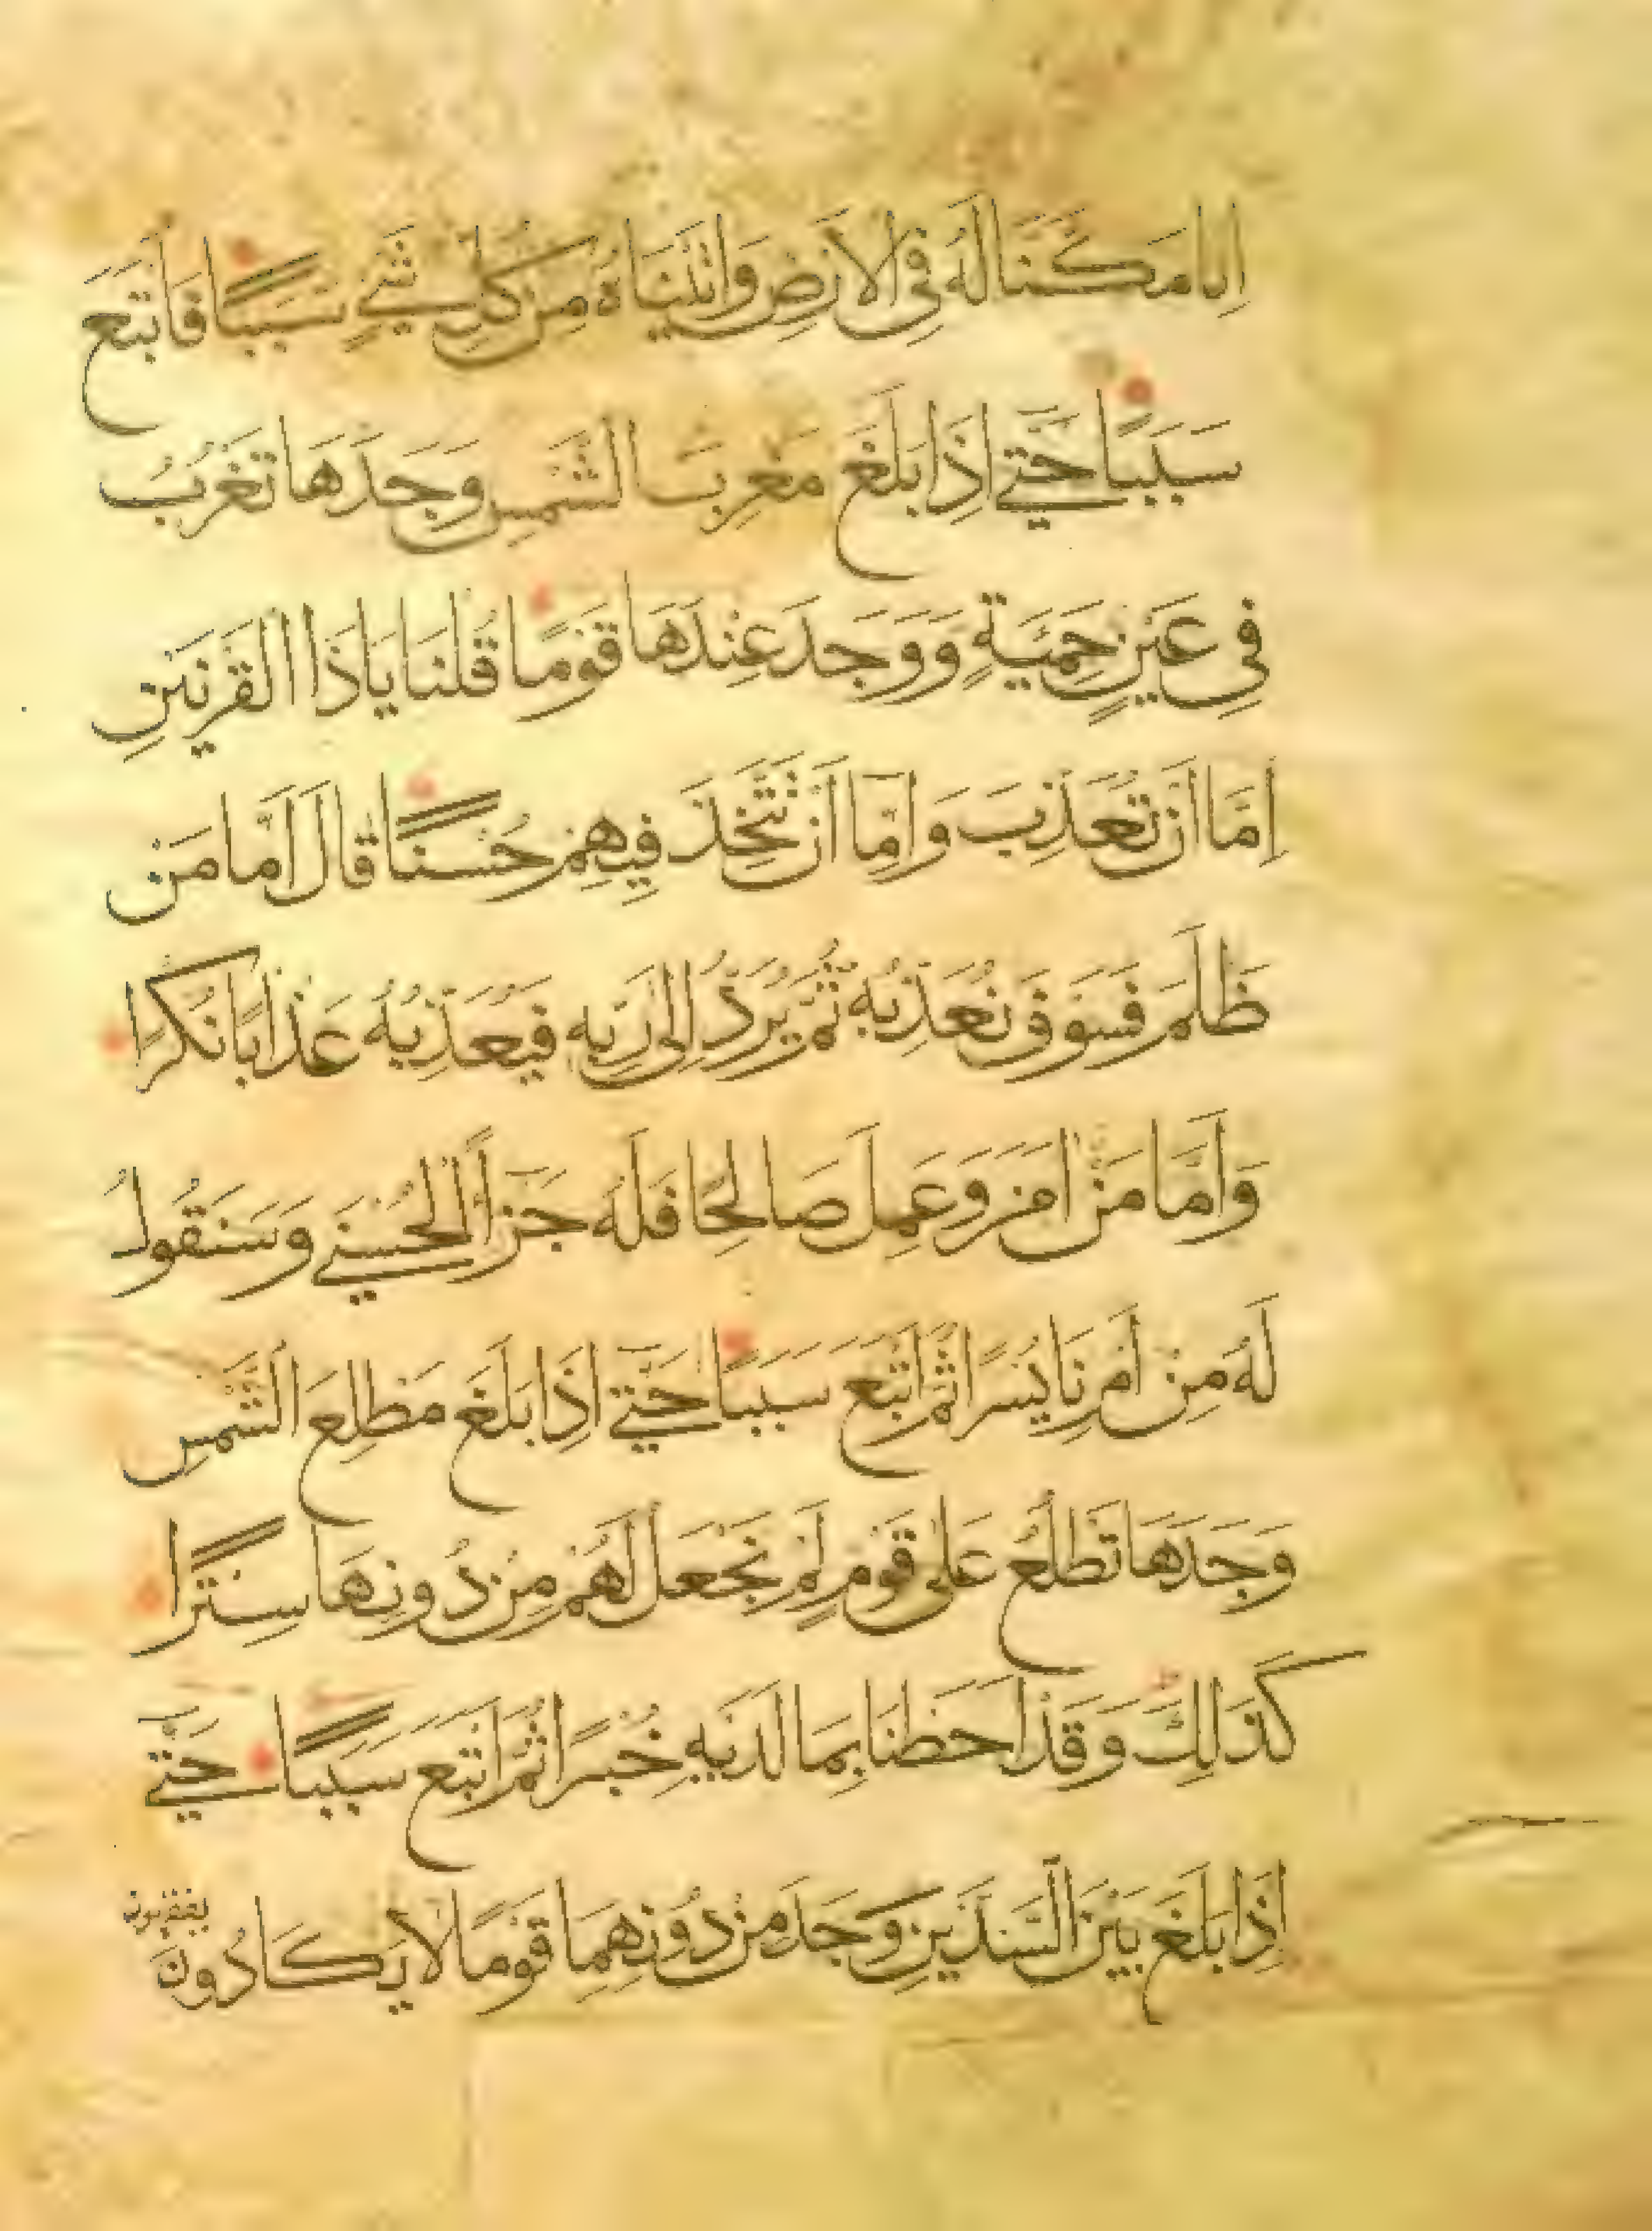 اِنا مَكَّنَا لَهُ فِى الْاَرْضِ وَاٰتَيْنَاهُ مِنْ كُلِّ شَيْءٍ سَبَبًا فَاَتْبَعَ
سَبَبًا حَتّٰى اِذَا بَلَغَ مَغْرِبَ الشَّمْسِ وَجَدَهَا تَغْرُبُ
فِى عَيْنٍ حَمِئَةٍ وَوَجَدَ عِنْدَهَا قَوْمًا قُلْنَا يَاذَا الْقَرْنَيْنِ
اِمَّا اَنْ تُعَذِّبَ وَاِمَّا اَنْ تَتَّخِذَ فِيهِمْ حُسْنًا قَالَ اَمَّا مَنْ
ظَلَمَ فَسَوْفَ نُعَذِّبُهُ ثُمَّ يُرَدُّ اِلٰى رَبِّهِ فَيُعَذِّبُهُ عَذَابًا نُكْرًا
وَاَمَّا مَنْ اٰمَنَ وَعَمِلَ صَالِحًا فَلَهُ جَزَاءً الْحُسْنٰى وَسَنَقُولُ
لَهُ مِنْ اَمْرِنَا يُسْرًا ثُمَّ اَتْبَعَ سَبَبًا حَتّٰى اِذَا بَلَغَ مَطْلِعَ الشَّمْسِ
وَجَدَهَا تَطْلُعُ عَلٰى قَوْمٍ لَمْ نَجْعَلْ لَهُمْ مِنْ دُونِهَا سِتْرًا
كَذٰلِكَ وَقَدْ اَحَطْنَا بِمَا لَدَيْهِ خُبْرًا ثُمَّ اَتْبَعَ سَبَبًا حَتّٰى
اِذَا بَلَغَ بَيْنَ السَّدَّيْنِ وَجَدَ مِنْ دُونِهِمَا قَوْمًا لَا يَكَادُونَ
يفقهون